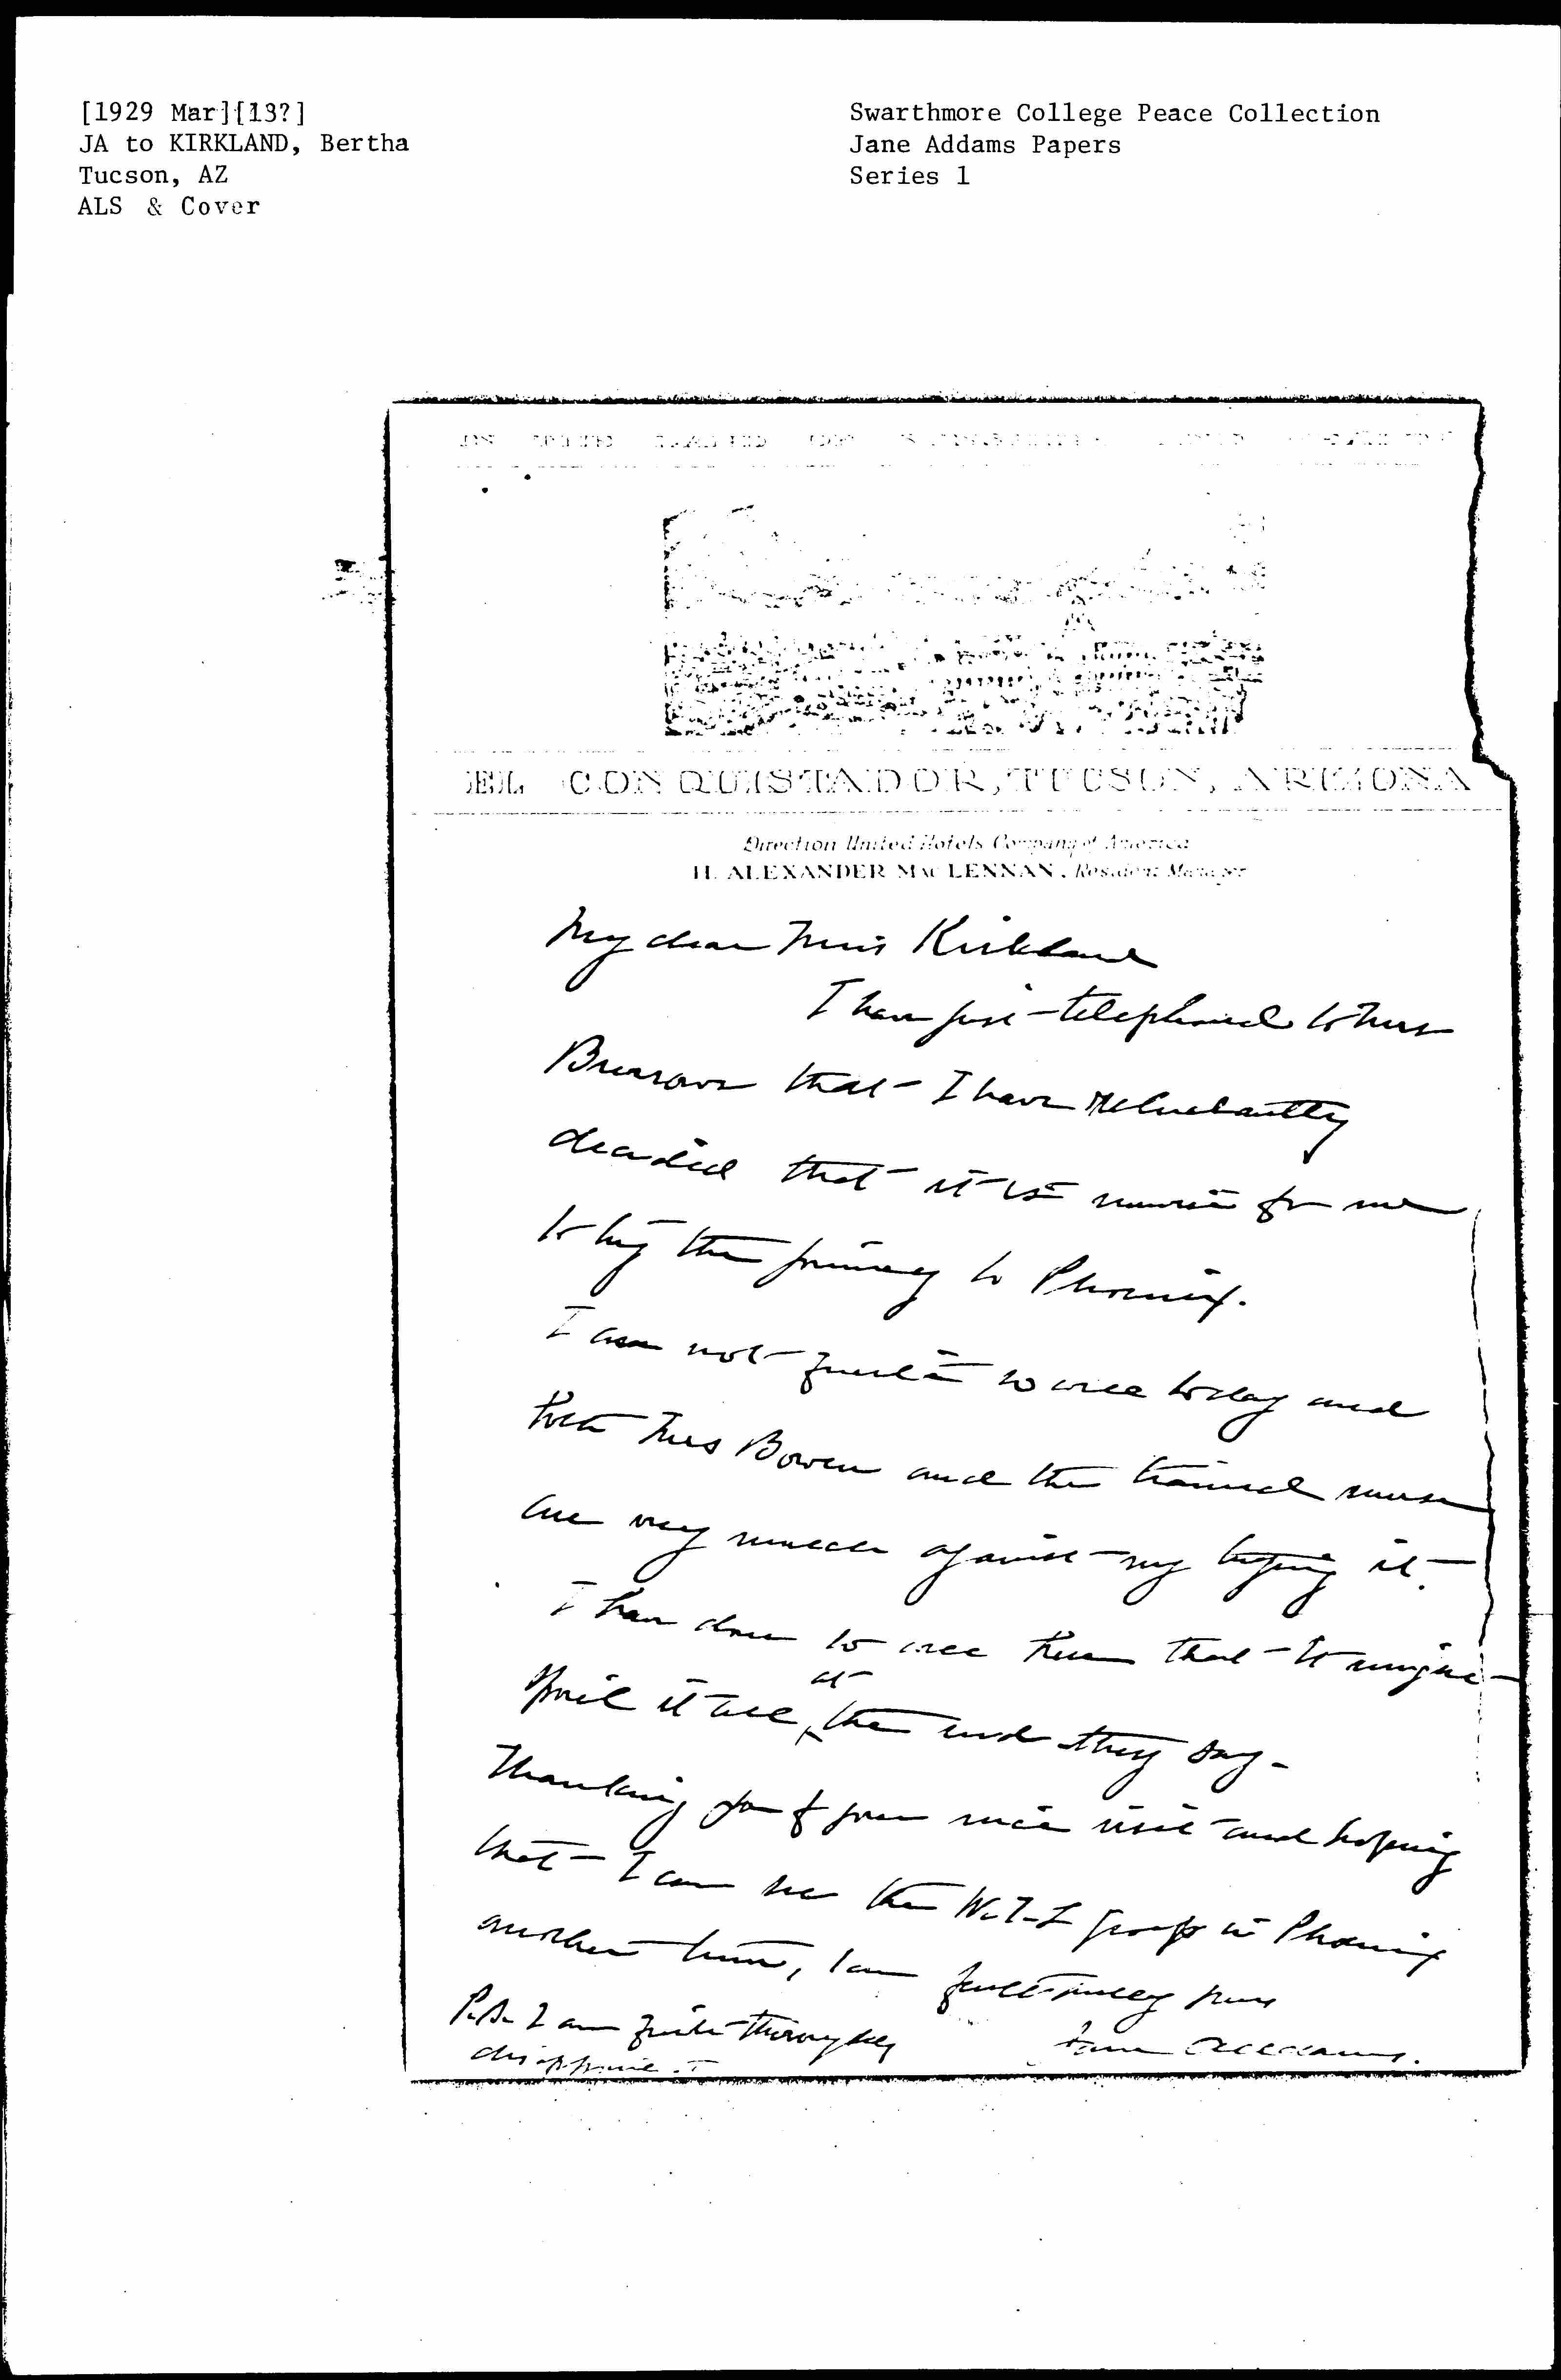 [1929 Mar][13?]
JA to KIRKLAND, Bertha
Tucson, AZ
ALS & Cover
Swarthmore College Peace Collection
Jane Addams Papers
Series 1
EL CONQUISTADOR, TUCSON, ARIZONA
Direction United Hotels Company of America
H. ALEXANDER MacLENNAN, Resident Manager
My dear Miss Kirkland
I have just telephoned to Miss
that I have reluctantly
decided that it is unwise for me
to try the journey to Phoenix.
I am not quite so well today and
both Mrs Bowen and the trained nurse
are very much against my trying it.
I have done so well here that it might
spoil it all, at the end they say -
Thanking you for your nice visit and hoping
that I can see the W.I.L group in Phoenix
another time, I am faithfully yours
Jane Addams.
P.S. I am quite thoroughly
disappointed